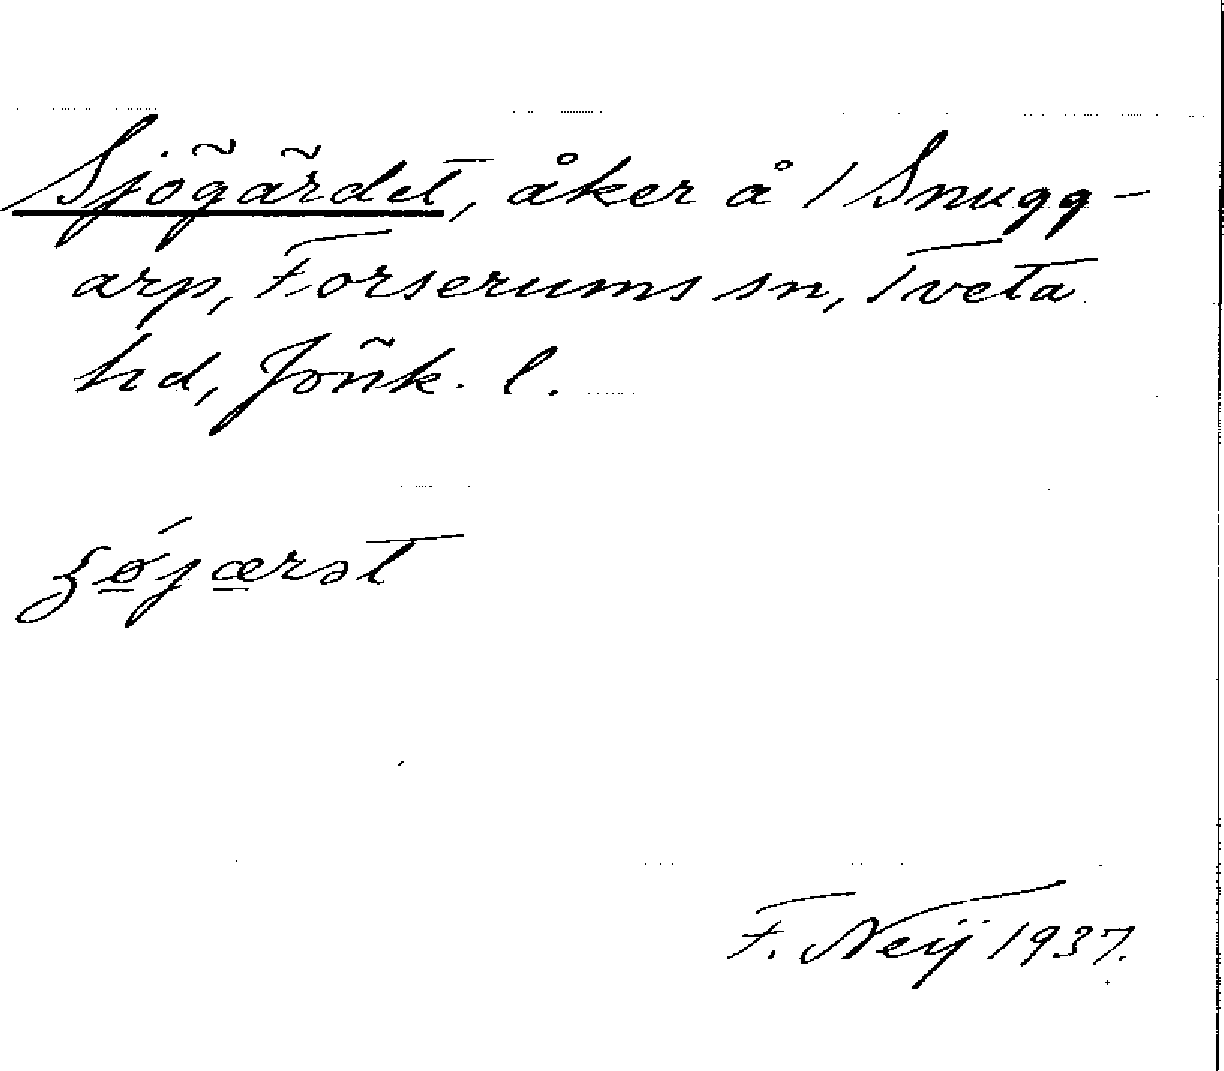 Sjögärdet, åker å 1 Snugg-
arp, Forserums sn, Tveta
hd, Jönk. l.
F. Neij 1937.